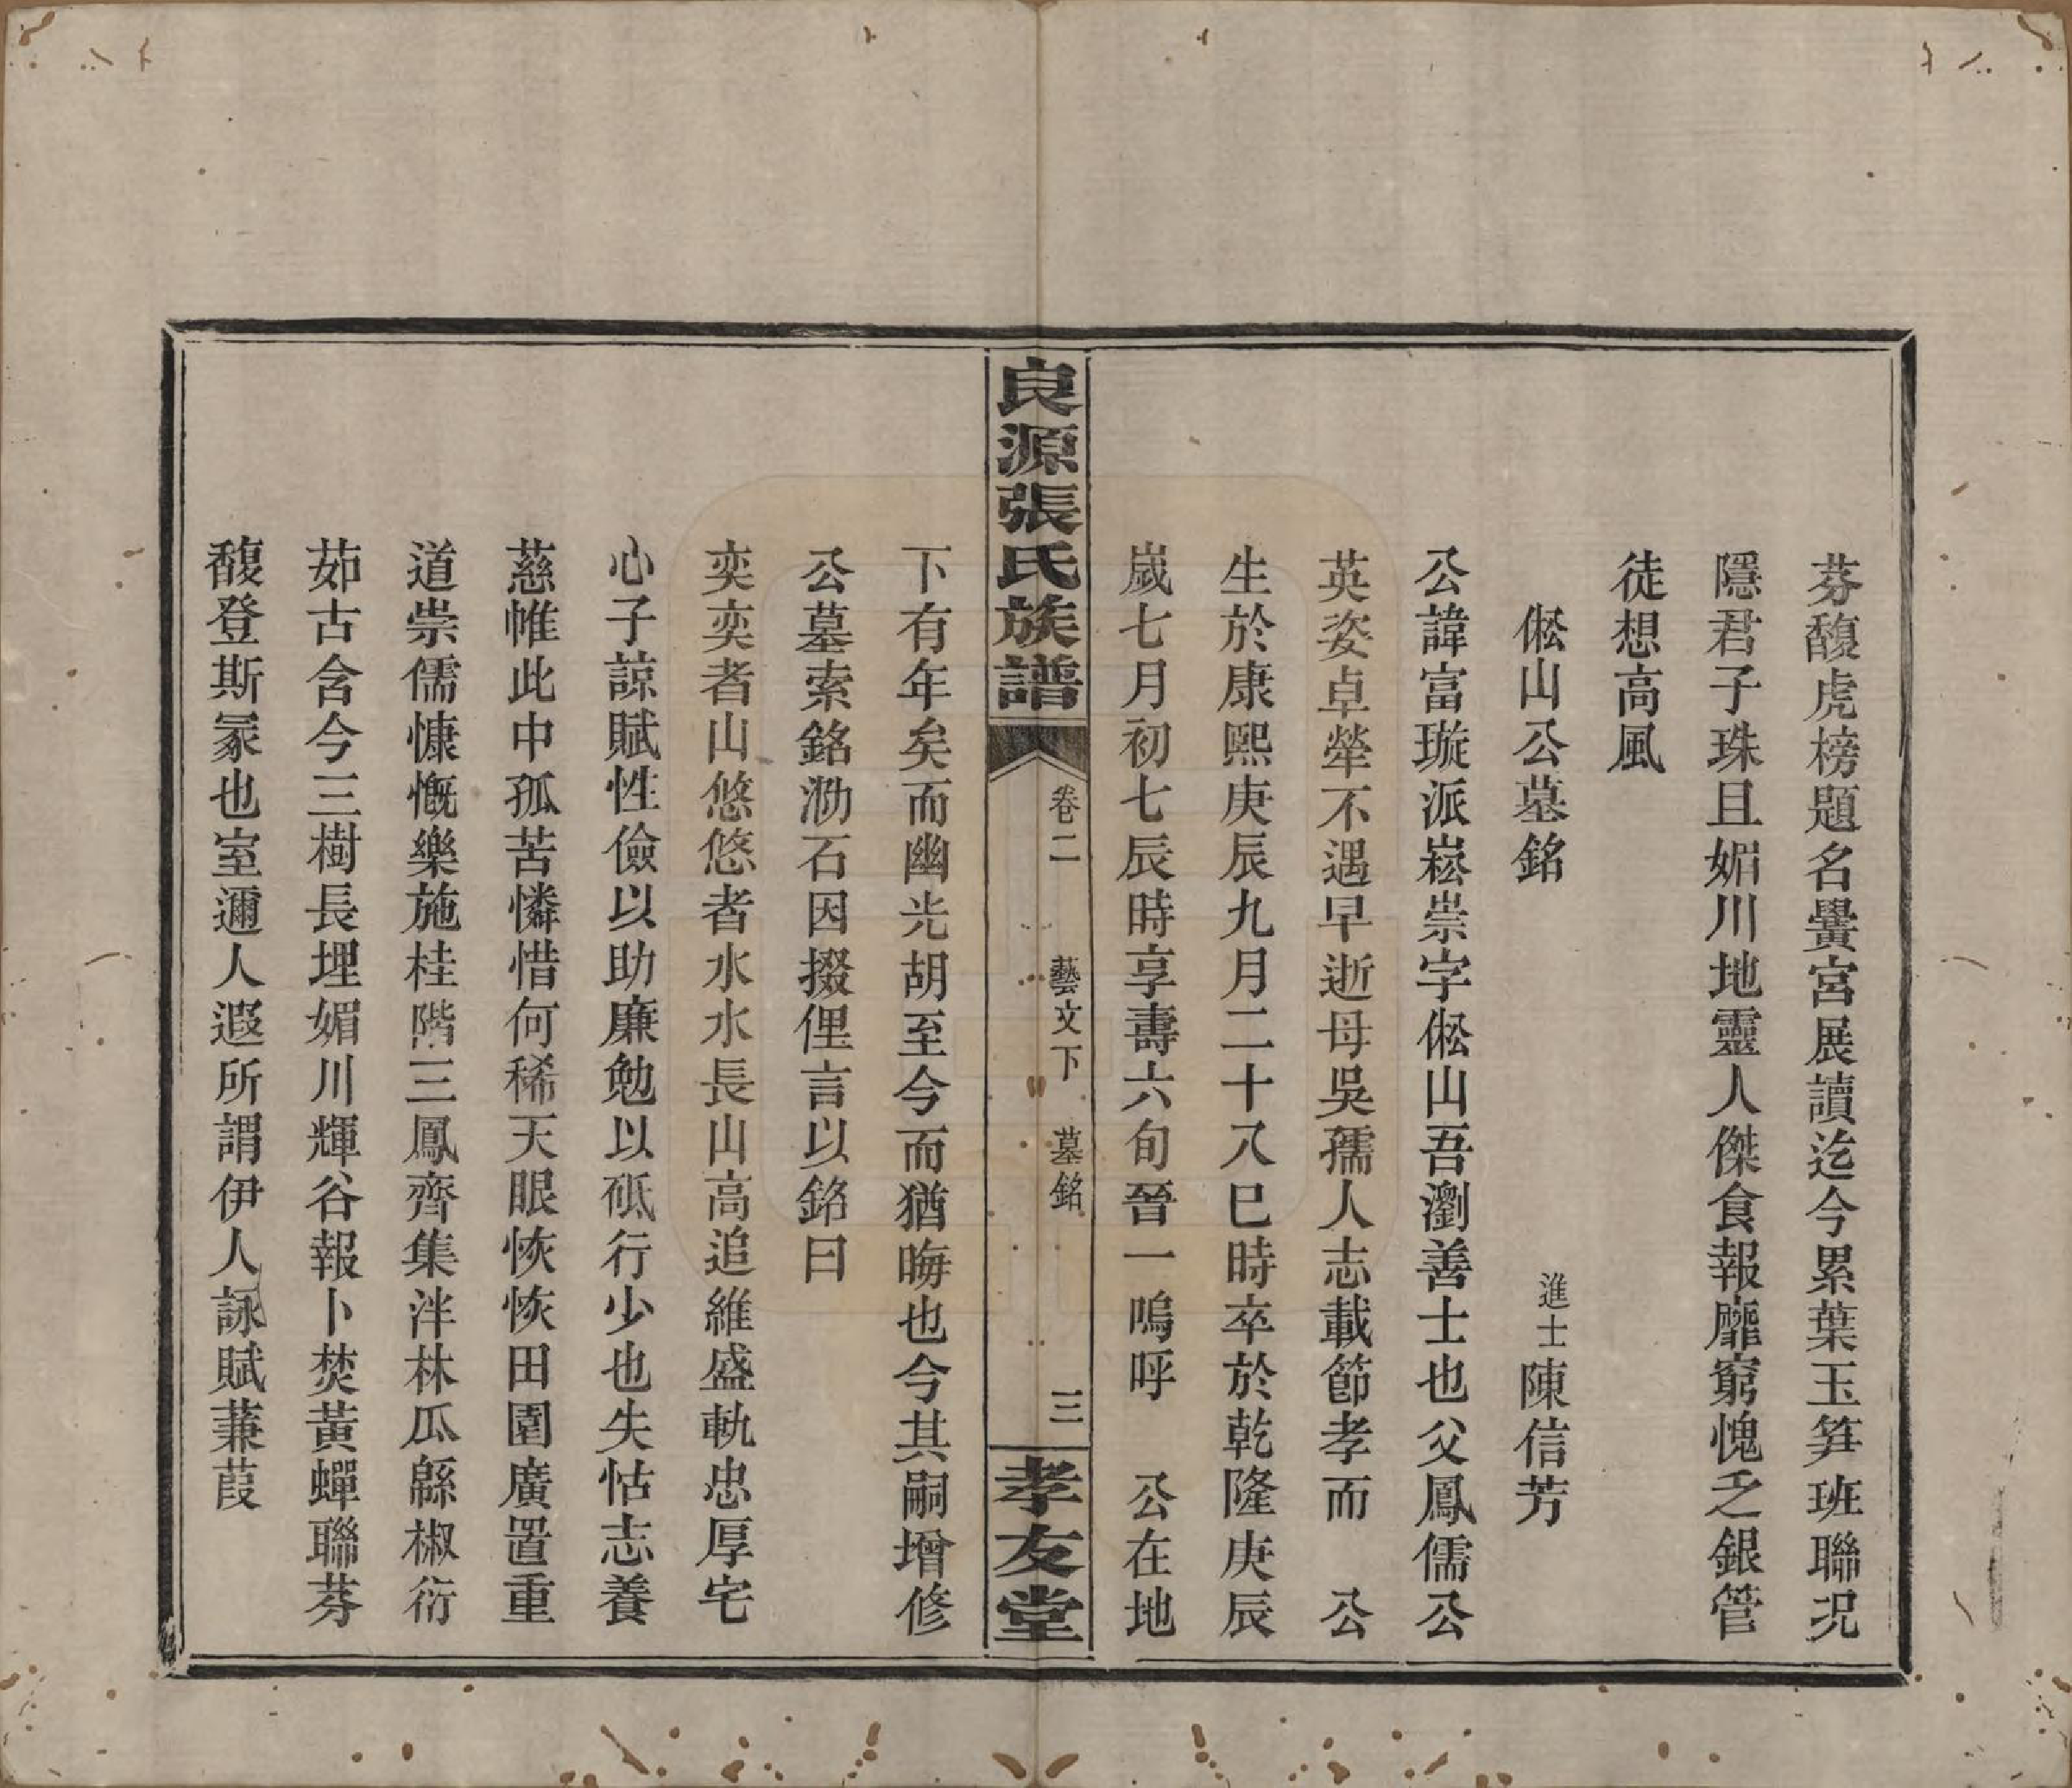 芬馥虎榜題名黌宮展讀迄今累葉玉筍班聯况
隱君子珠且媚川地靈人傑食報靡窮愧乏銀管
徒想高風
倯山公墓銘 進士陳信芳
公諱富璇派崧崇字倯山吾瀏善士也父鳳儒公
英姿卓犖不遇早逝母吳孺人志載節孝而 公
生於康熙庚辰九月二十八巳時卒於乾隆庚辰
歲七月初七辰時享壽六旬晉一嗚呼 公在地
良源張氏族譜 卷二 藝文下 墓銘 三 孝友堂
下有年矣而幽光胡至今而猶晦也今其嗣增修
公墓索銘泐石因掇俚言以銘曰
奕奕者山悠悠者水水長山高追維盛軌忠厚宅
心子諒賦性儉以助廉勉以砥行少也失怙志養
慈帷此中孤苦憐惜何稀天眼恢恢田園廣置重
道崇儒慷慨樂施桂階三鳳齊集泮林瓜緜椒衍
茹古含今三樹長埋媚川輝谷報卜焚黃蟬聯芬
馥登斯冢也室邇人遐所謂伊人詠賦蒹葭